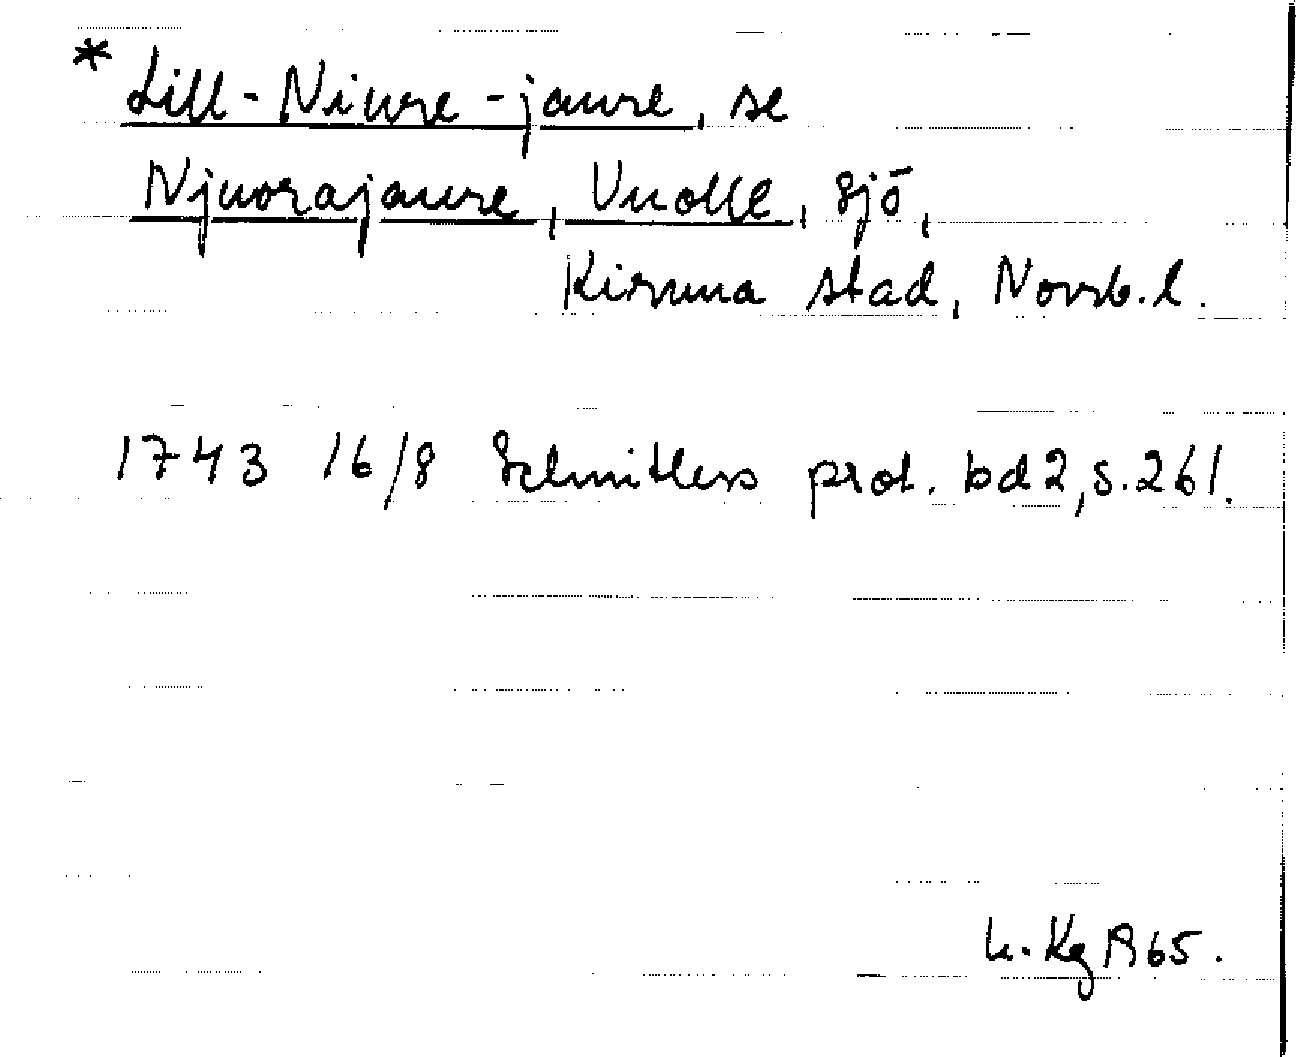 * Lill-Niure-jaure, se
Njuorajaure, Vuolle, sjö,
Kiruna stad, Norrb.l.
1743 16/8 Schnitlers prot. bd 2, s. 261.